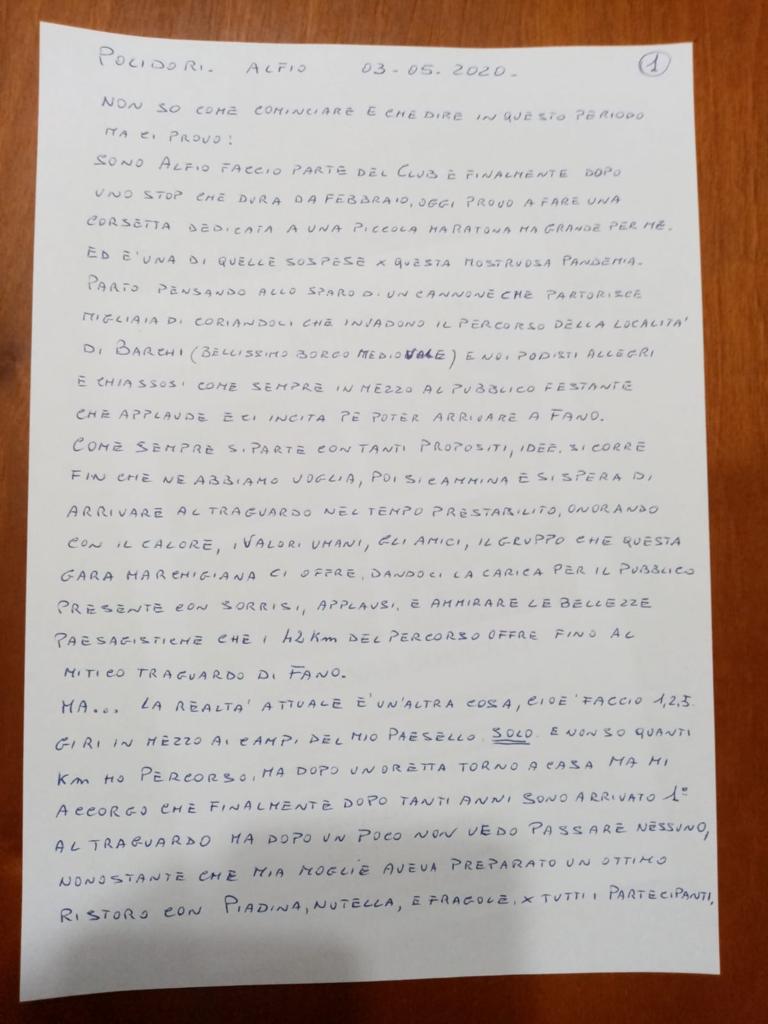 POLIDORI. ALFIO 03-05. 2020. 1
NON SO COME COMINCIARE E CHE DIRE IN QUESTO PERIODO
MA CI PROVO!
SONO ALFIO FACCIO PARTE DEL CLUB E FINALMENTE DOPO
UNO STOP CHE DURA DA FEBBRAIO, OGGI PROVO A FARE UNA
CORSETTA DEDICATA A UNA PICCOLA MARATONA MA GRANDE PER ME.
ED E' UNA DI QUELLE SOSPESE X QUESTA MOSTRUOSA PANDEMIA.
PARTO PENSANDO ALLO SPARO DI UN CANNONE CHE PARTORISCE
MIGLIAIA DI CORIANDOLI CHE INVADONO IL PERCORSO DELLA LOCALITA'
DI BARCHI (BELLISSIMO BORGO MEDIOVALE) E NOI PODISTI ALLEGRI
E CHIASSOSI COME SEMPRE IN MEZZO AL PUBBLICO FESTANTE
CHE APPLAUDE E CI INCITA PE POTER ARRIVARE A FANO.
COME SEMPRE SI PARTE CON TANTI PROPOSITI, IDEE. SI CORRE
FIN CHE NE ABBIAMO VOGLIA, POI SI CAMMINA E SI SPERA DI
ARRIVARE AL TRAGUARDO NEL TEMPO PRESTABILITO, ONORANDO
CON IL CALORE, I VALORI UMANI, GLI AMICI, IL GRUPPO CHE QUESTA
GARA MARCHIGIANA CI OFFRE, DANDOCI LA CARICA PER IL PUBBLICO
PRESENTE CON SORRISI, APPLAUSI. E AMMIRARE LE BELLEZZE
PAESAGISTICHE CHE I 42 Km DEL PERCORSO OFFRE FINO AL
MITICO TRAGUARDO DI FANO.
MA... LA REALTA' ATTUALE E' UN'ALTRA COSA, CIOE' FACCIO 1,2,3.
GIRI IN MEZZO AI CAMPI DEL MIO PAESELLO SOLO. E NON SO QUANTI
Km HO PERCORSO, MA DOPO UN ORETTA TORNO A CASA MA MI
ACCORGO CHE FINALMENTE DOPO TANTI ANNI SONO ARRIVATO 1°
AL TRAGUARDO MA DOPO UN POCO NON VEDO PASSARE NESSUNO,
NONOSTANTE CHE MIA MOGLIE AVEVA PREPARATO UN OTTIMO
RISTORO CON PIADINA, NUTELLA, E FRAGOLE, X TUTTI I PARTECIPANTI.